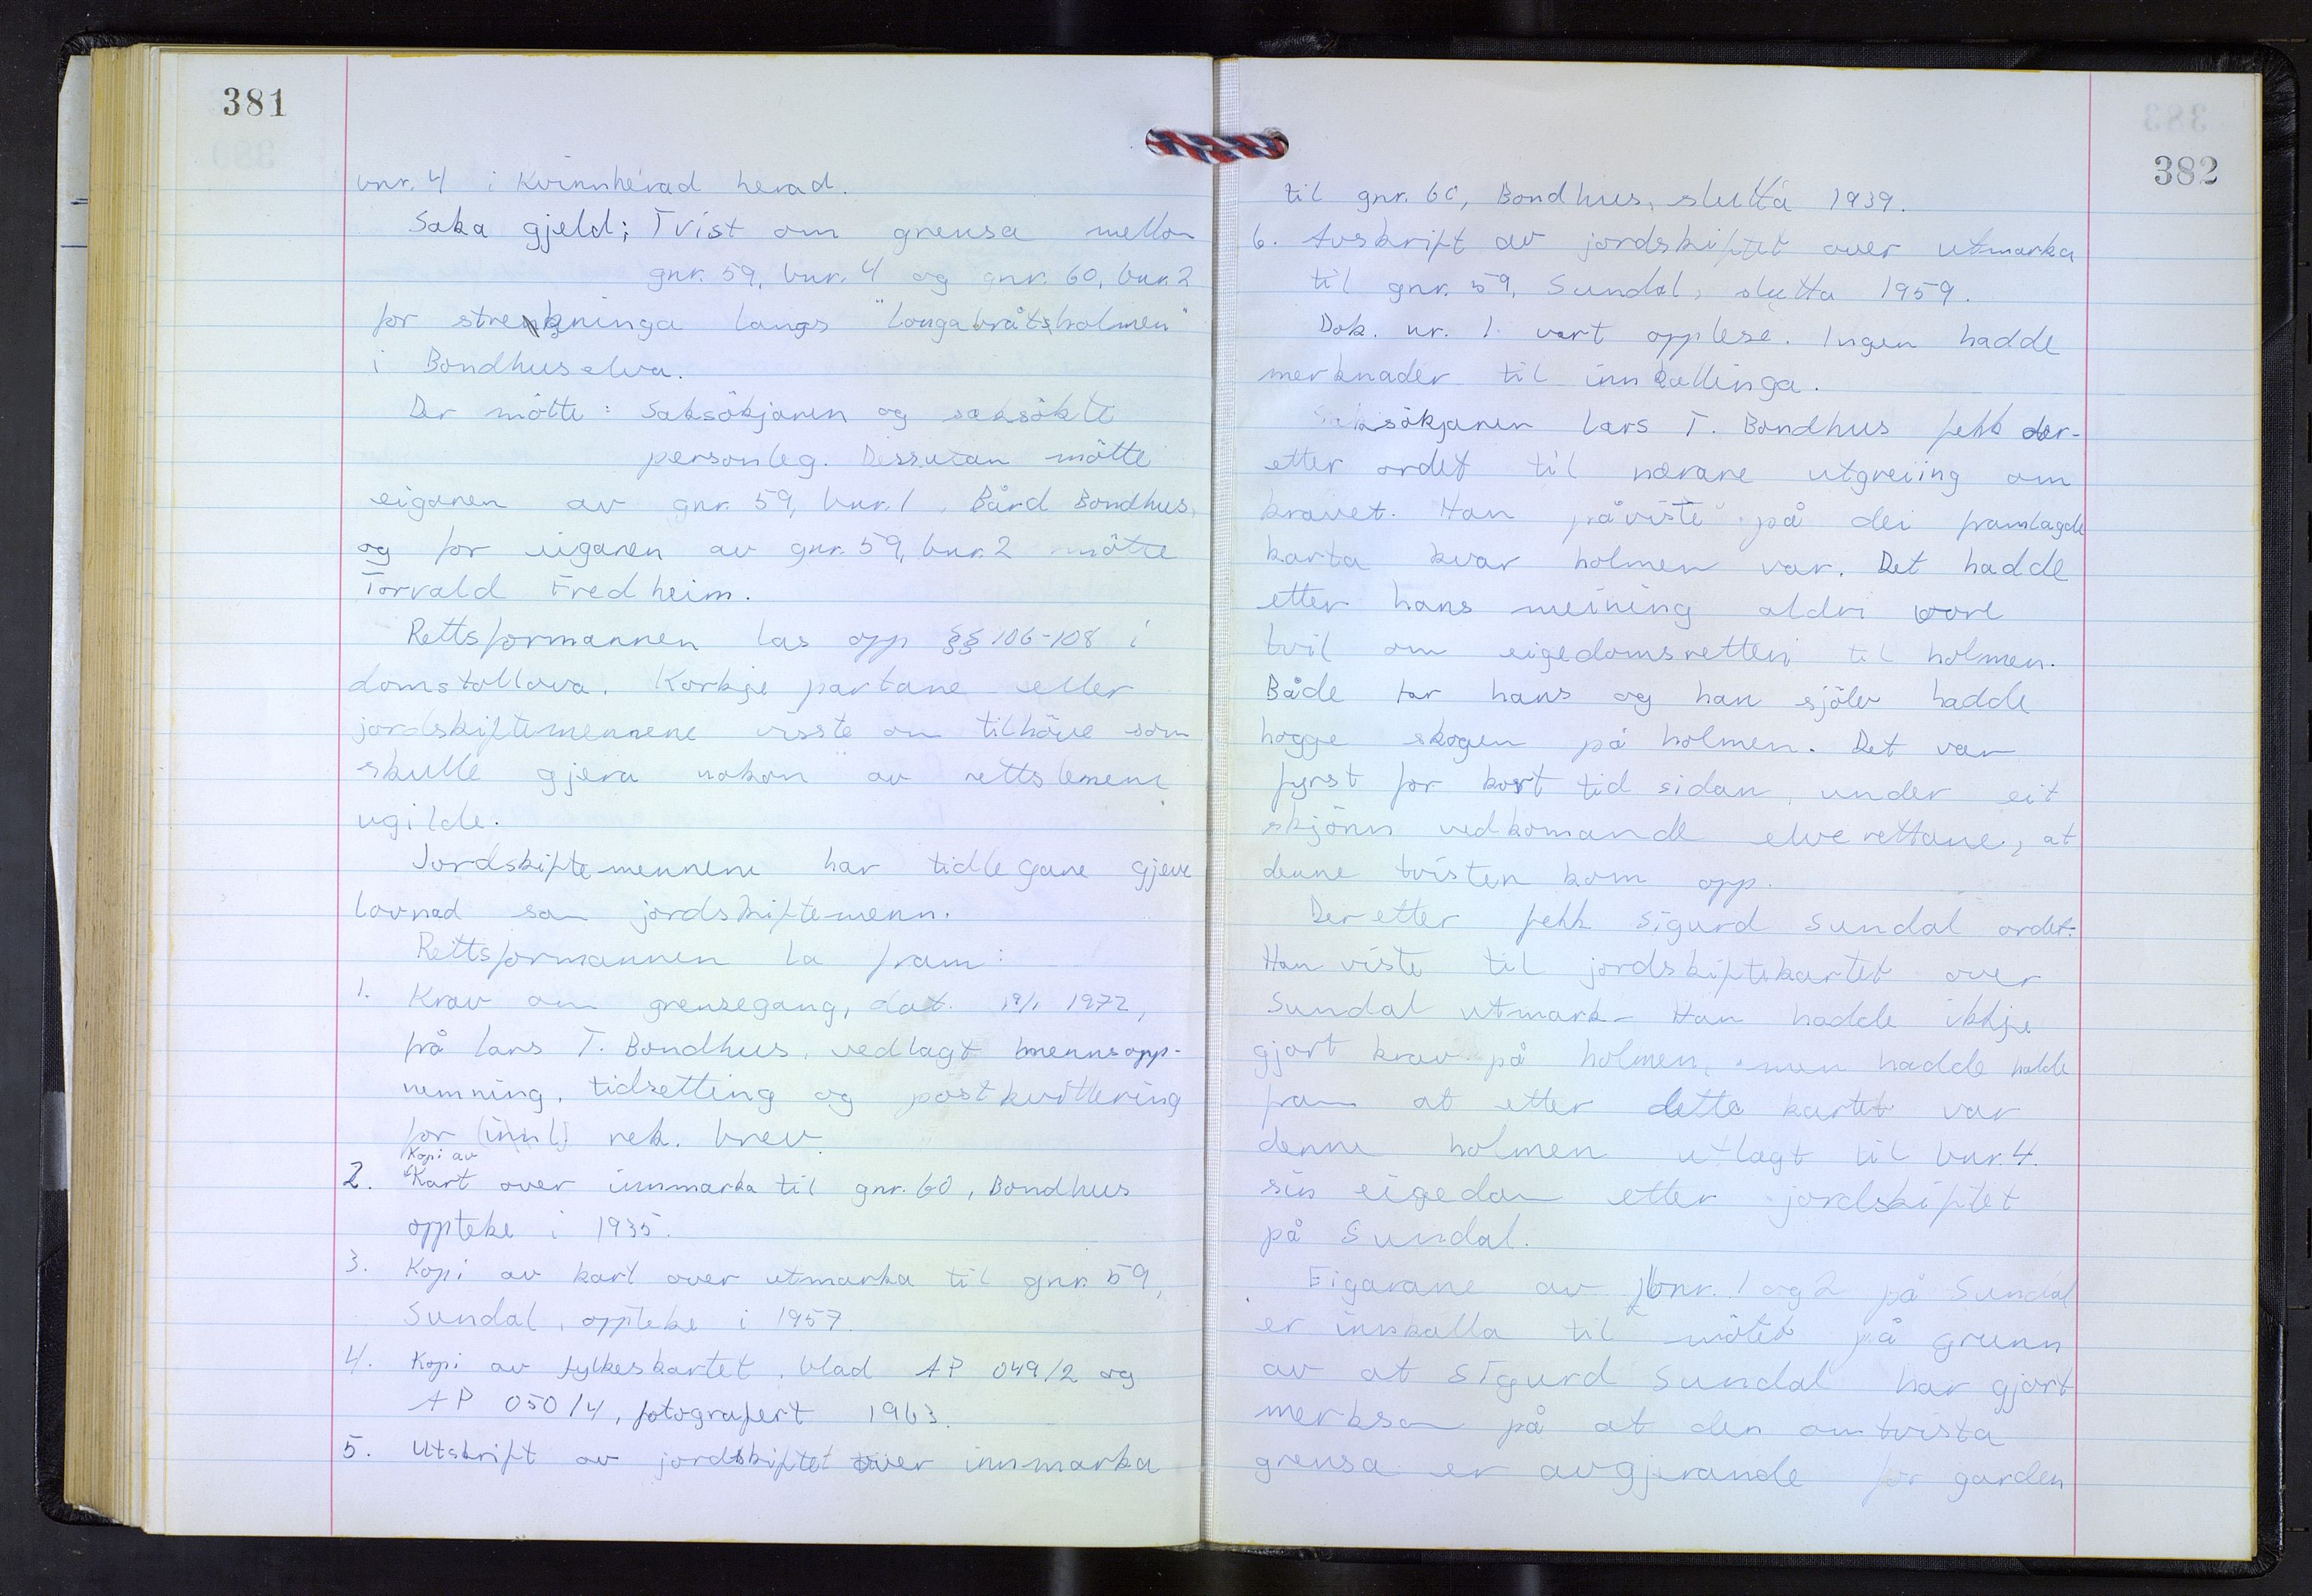 381
bnr. 4 i Kvinnherad herad.
Saka gjeld; Tvist om grensa mellom
gnr. 59, bnr. 4 og gnr. 60, bnr. 2
for strekninga langs "Longabråtsholmen"
i Bondhuselva.
Der mötte: Saksökjaren og saksökte
personleg. Dessutan mötte
eigaren av gnr. 59, bnr. 1, Bård Bondhus,
og for eigaren av gnr. 59, bnr. 2 mötte
Torvald Fredheim.
Rettsformannen las opp §§ 106-108 i
domstollova. Korkje partane eller
jordskiftemennene visste om tilhöve som
skulle gjera nokon av rettslemene
ugilde.
Jordskiftemennene har tidlegare gjeve
lovnad som jordskiftemenn.
Rettsformannen la fram:
1. Krav om grensegang, dat. 19/1 1972,
frå Lars T. Bondhus, vedlagt mennsopp-
nemning, tidsetting og postkvittering
for (innl) rek. brev.
Kopi av
2. Kart over innmarka til gnr. 60, Bondhus
oppteke i 1935.
3. Kopi av kart over utmarka til gnr. 59,
Sundal, oppteke i 1957.
4. Kopi av fylkeskartet, blad AP 049/2 og
AP 050/4, fotografert 1963.
5. Utskrift av jordskiftet over innmarka
382
til gnr. 60, Bondhus, slutta 1939.
6. Avskrift av jordskiftet over utmarka
til gnr. 59, Sundal, slutta 1959.
Dok. nr. 1 vart opplese. Ingen hadde
merknader til innkallinga.
Saksökjaren Lars T. Bondhus fekk der-
etter ordet til nærare utgreiing om
kravet. Han påviste på dei framlagde
karta kvar holmen var. Det hadde
etter hans meining aldri vore
tvil om eigedomsretten til holmen.
Både far hans og han sjölv hadde
hogge skogen på holmen. Det var
fyrst for kort tid sidan, under eit
skjönn vedkomande elverettane, at
denne tvisten kom opp.
Deretter fekk Sigurd Sundal ordet.
Han viste til jordskiftekartet over
Sundal utmark. Han hadde ikkje
gjort krav på holmen, men hadde halde
fram at etter dette kartet var
denne holmen utlagt til bnr. 4.
sin eigedom etter jordskiftet
på Sundal.
Eigarane av bnr. 1 og 2 på Sundal
er innkalla til mötet på grunn
av at Sigurd Sundal har gjort
merksam på at den omtvista
grensa er avgjerande for garden